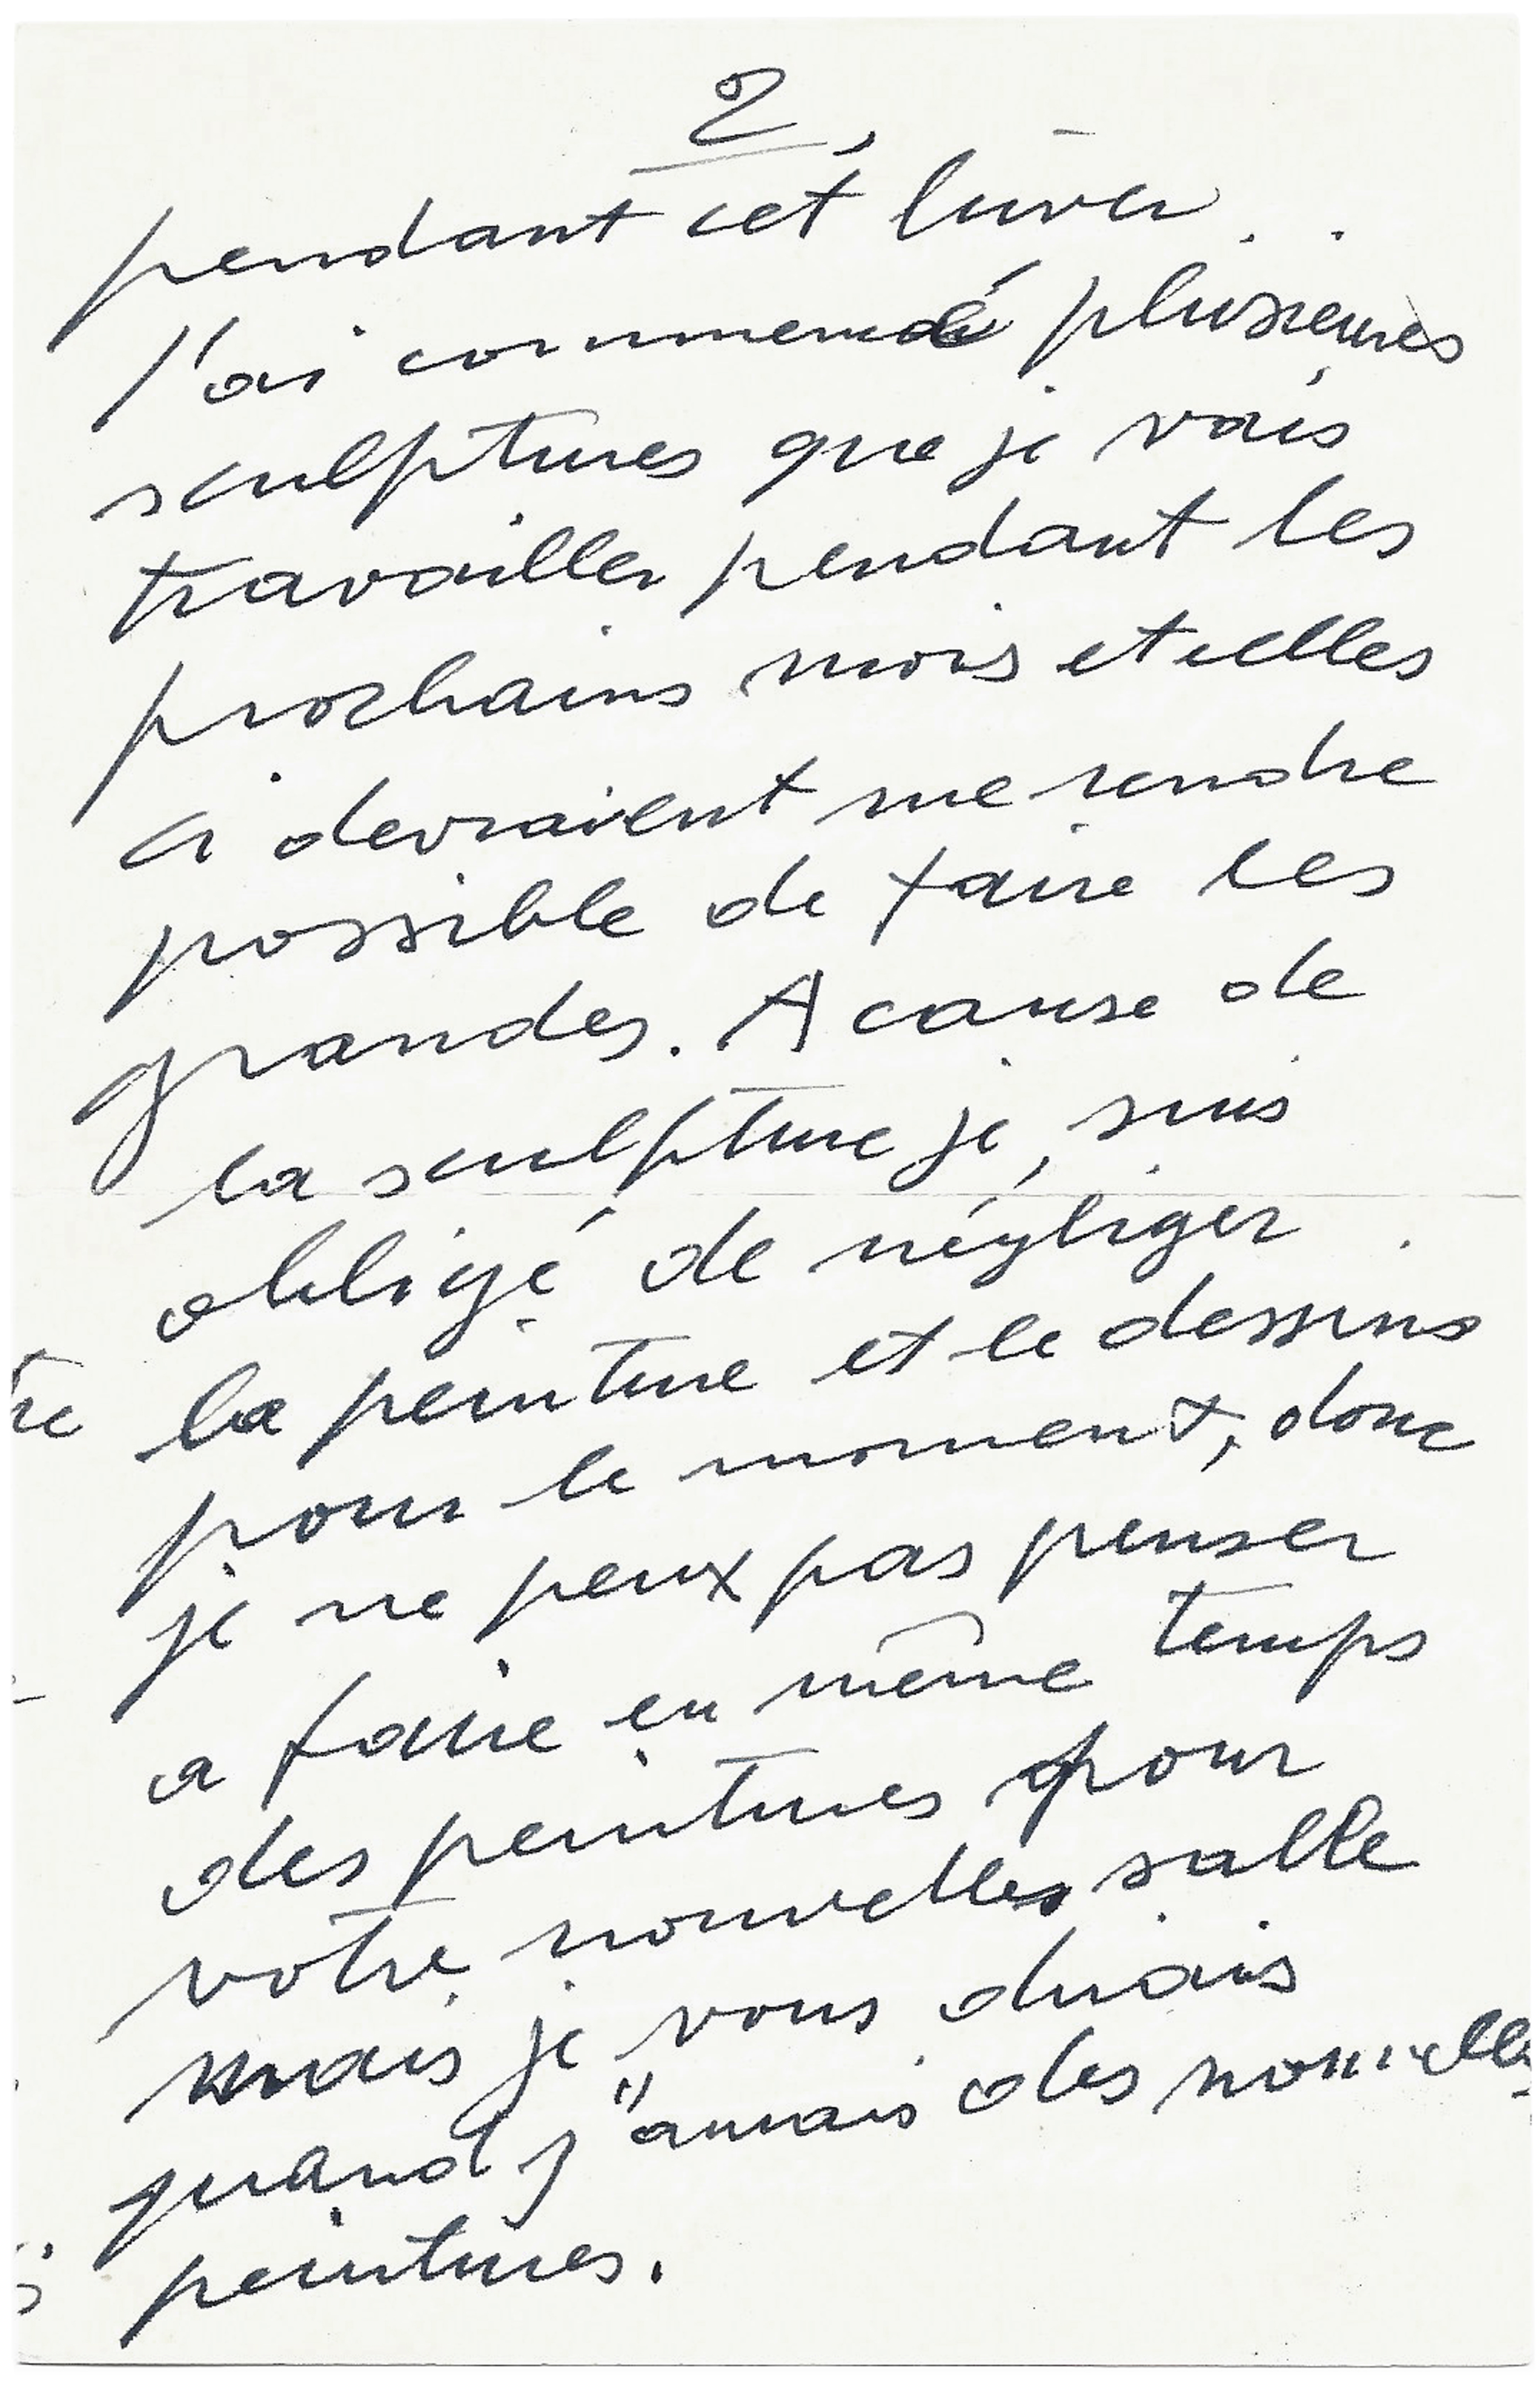 2,
pendant cet hiver.
J'ai commencé plusieures
sculptures que je vais
travailler pendant les
prochains mois et celles
ci devraient me rendre
possible de faire les
grandes. A cause de
la sculpture je suis
obligé de négliger
la peinture et le dessins
pour le moment, donc
je ne peux pas penser
a faire en même temps
des peintures pour
votre nouvelles salle
mais je vous dirais
quand j"aurais des nouvelles
peintures.